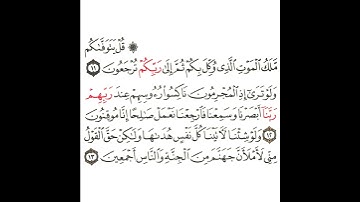 ۞ قُلْ يَتَوَفَّىٰكُم
مَّلَكُ ٱلْمَوْتِ ٱلَّذِى وُكِّلَ بِكُمْ ثُمَّ إِلَىٰ رَبِّكُمْ تُرْجَعُونَ ١١
وَلَوْ تَرَىٰٓ إِذِ ٱلْمُجْرِمُونَ نَاكِسُوا۟ رُءُوسِهِمْ عِندَ رَبِّهِمْ
رَبَّنَآ أَبْصَرْنَا وَسَمِعْنَا فَٱرْجِعْنَا نَعْمَلْ صَـٰلِحًا إِنَّا مُوقِنُونَ
١٢ وَلَوْ شِئْنَا لَـَٔاتَيْنَا كُلَّ نَفْسٍ هُدَىٰهَا وَلَـٰكِنْ حَقَّ ٱلْقَوْلُ
مِنِّى لَأَمْلَأَنَّ جَهَنَّمَ مِنَ ٱلْجِنَّةِ وَٱلنَّاسِ أَجْمَعِينَ ١٣